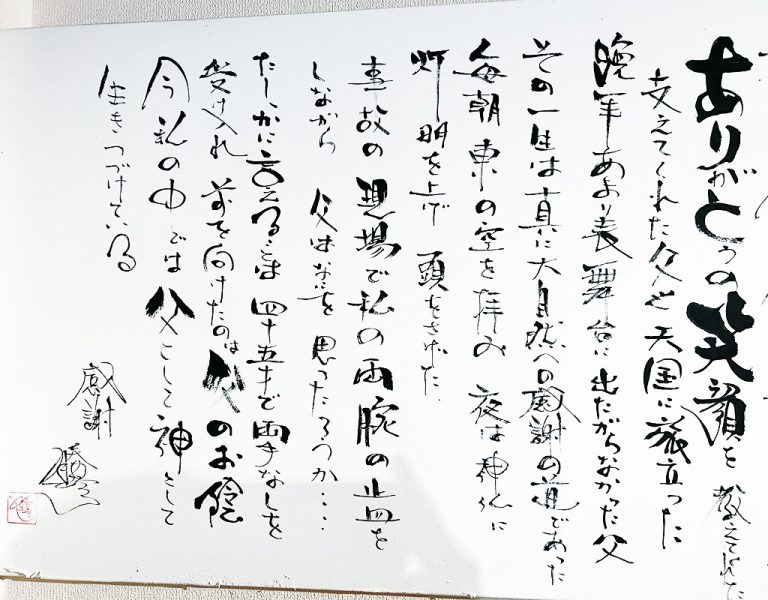 ありがとうの笑顔を教えてくれた
支えてくれた父も天国に旅立った
晩年あまり表舞台に出たがらなかった父
その一生は真に大自然への感謝の道であった
毎朝東の空を拝み 夜は神仏に
灯明を上げ 頭をさげた
事故の現場で私の両腕の止血を
しながら 父はなにを思ったろうか・・・・
たしかに言えることは四十五才で両手なしを
受け入れ 前を向けたのは父のお陰
今私の中では父として神として
生きつづけている
感謝